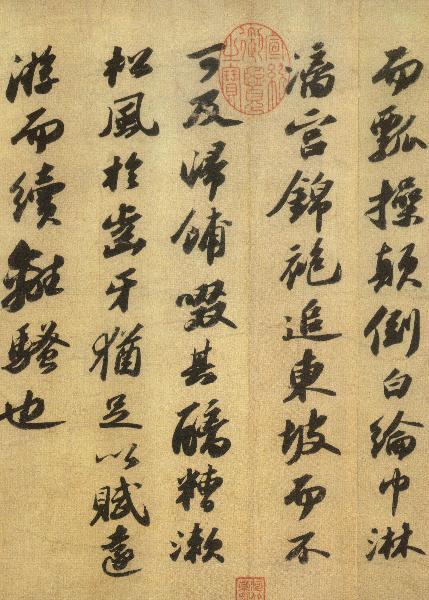 而瓢操顛倒白綸巾淋
漓宮錦袍追東坡而不
可及歸餔啜其醨糟漱
松風於齒牙猶足以賦遠
游而續離騷也
宣統御覽之寶